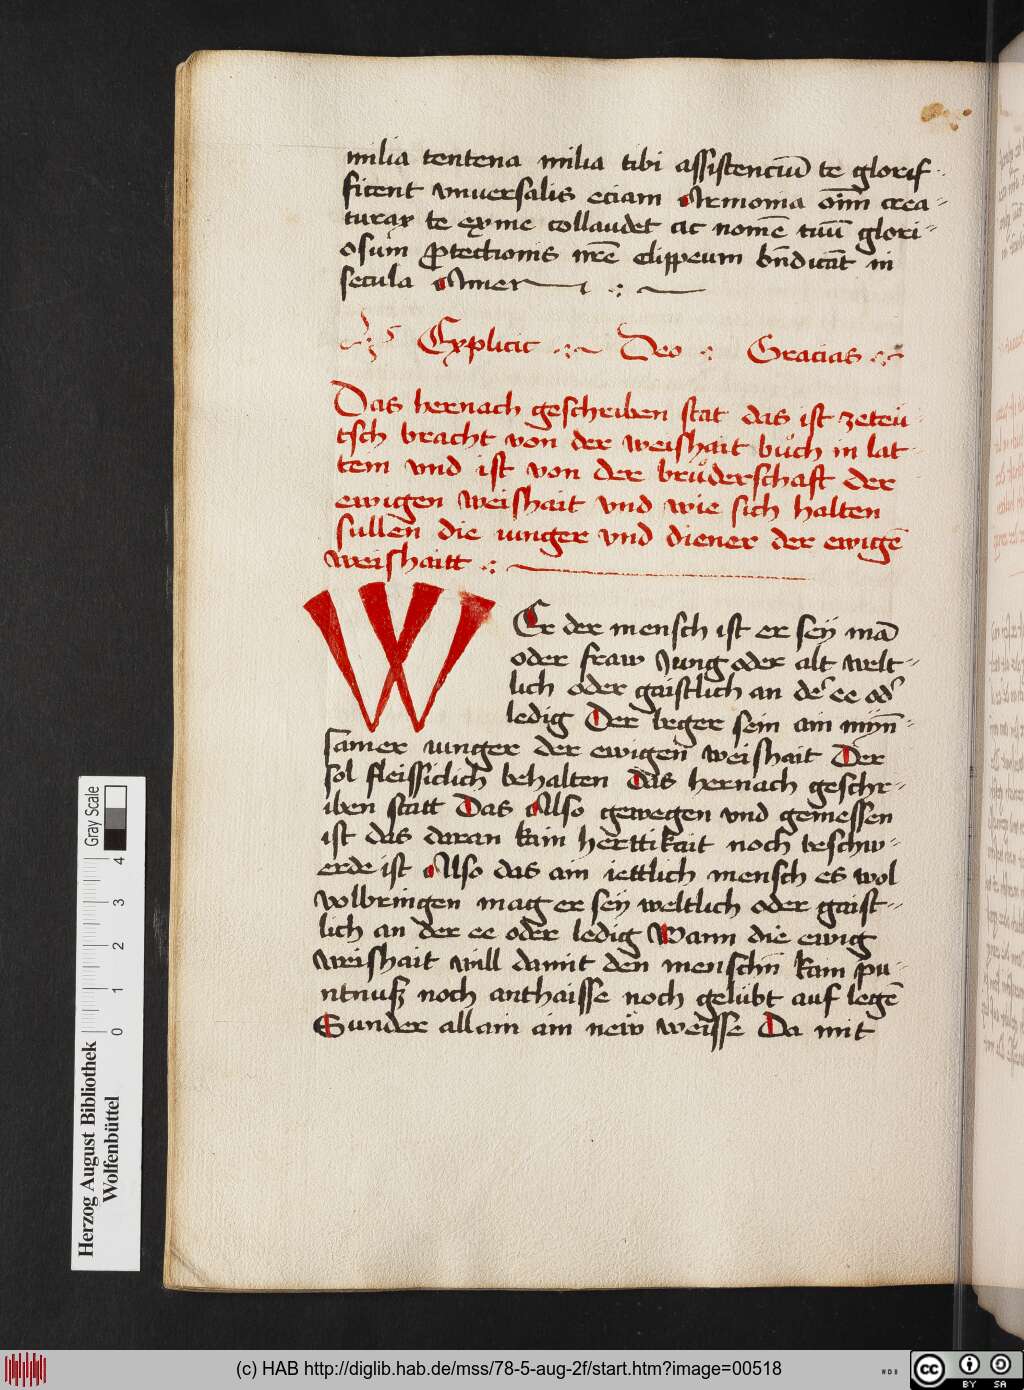 milia tentena milia tibi assistenciū te glorif-
ficent vniuersalis eciam Armonia oīm crea-
turaꝝ te exime collaudet ac nomē tuū glori-
osum Protectionis nr̄e clippeum bn̄dicāt in
secula Amen
Explicit Deo Gracias
Das hernach geschriben stat das ist zeteü
tsch bracht von der weishait bůch in lat
tem vnd ist von der brůderschaft der
ewigen weishait vnd wie sich halten
süllen die iunger vnd diener der ewigē
weishaitt
WEr der mensch ist er seÿ mā
oder fraw Jung oder alt welt-
lich oder gaistlich an der ee od'
ledig Der beger sein ain mÿn-
samer iunger der ewigen weishait Der
sol fleissiclich behalten Das hernach geschr-
iben statt Das Also gewegen vnd gemessen
ist das daran kain herttikait noch beschw-
erde ist Also das ain iettlich mensch es wol
volbringen mag er seÿ weltlich oder gaist-
lich an der ee oder ledig Wann die ewig
weishait will damit den menschn̄ kain pu-
ntnuß noch anthaisse noch gelübt auf legē
Sunder allain ain new weisse Da mit
Herzog August Bibliothek
Wolfenbüttel
Gray Scale
0 1 2 3 4
(c) HAB http://diglib.hab.de/mss/78-5-aug-2f/start.htm?image=00518
WDB
cc BY SA